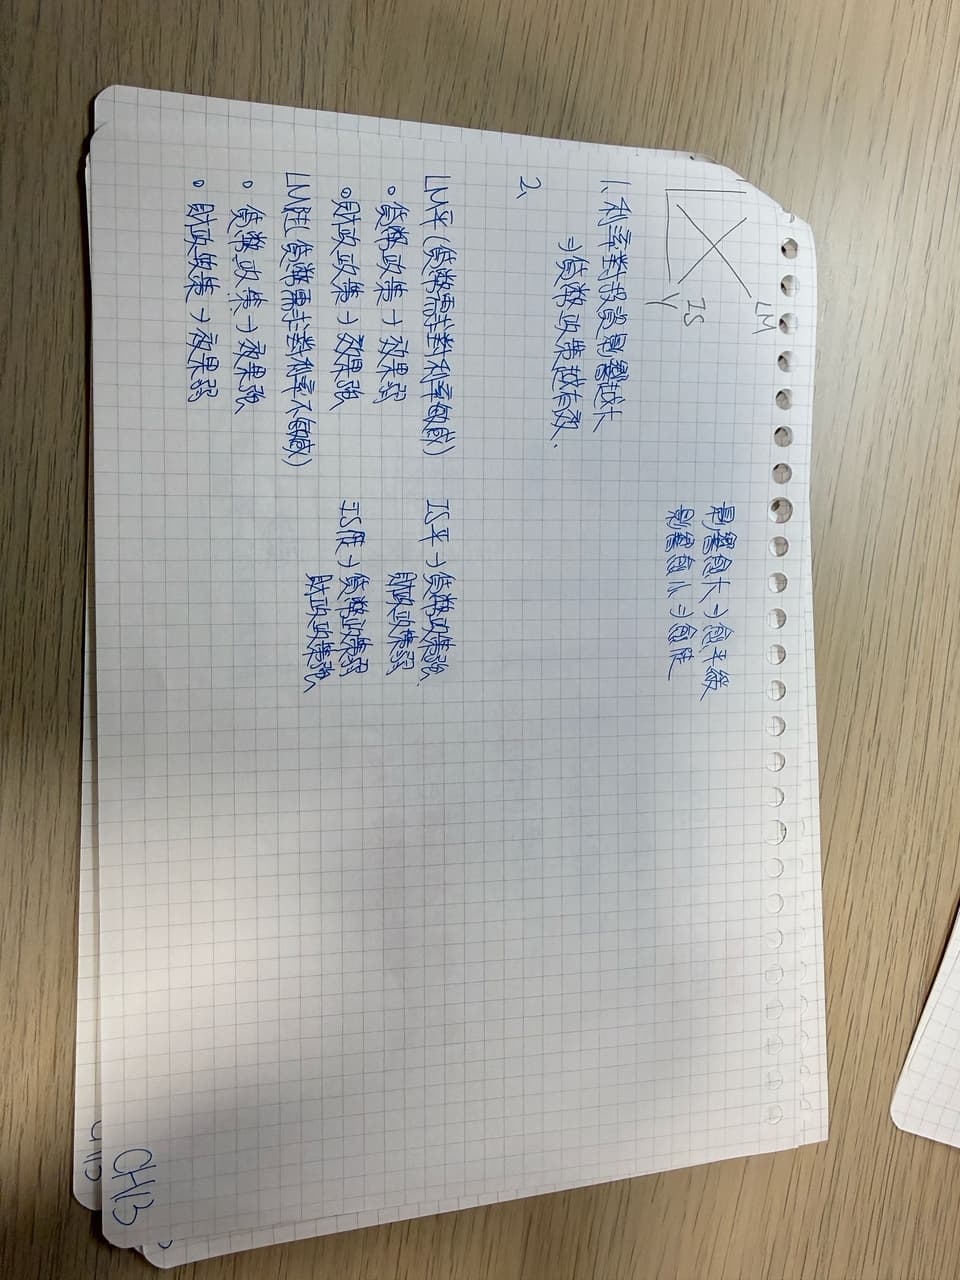 LM
IS
Y
影響愈大⇒愈平緩
影響愈小⇒愈陡
1、利率對投資影響越大
⇒貨幣政策越有效.
2、
LM平(貨幣需求對利率敏感)
。貨幣政策→效果弱
。財政政策→效果強
LM陡(貨幣需求對利率不敏感)
。貨幣政策→效果強
。財政政策→效果弱
IS平→貨幣政策強
財政政策弱
IS陡→貨幣政策弱
財政政策強
CH13